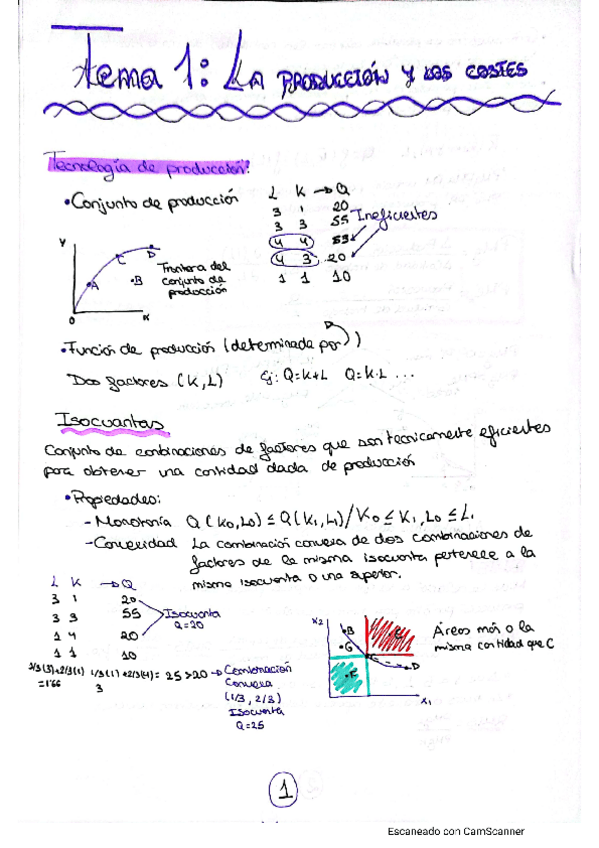 Tema 1: La producción y los costes
Tecnología de producción:
• Conjunto de producción
L K → Q
3 1 20
3 3 55
4 4 53
4 3 20
1 1 10
Ineficientes
Y
A
B
C
D
O
K
Frontera del
conjunto de
producción
• Función de producción (determinada por)
Dos factores (K, L) Ej: Q=K+L Q=K·L ...
Isocuantas
Conjunto de combinaciones de factores que son tecnicamente eficientes
para obtener una cantidad dada de producción
• Propiedades:
- Monotonía Q(K0, L0) ≤ Q(K1, L1) / K0 ≤ K1, L0 ≤ L1
- Convexidad La combinación convexa de dos combinaciones de
factores de la misma isocuanta pertenece a la
misma isocuanta o una superior.
L K → Q
3 1 20
3 3 55
1 4 20
1 1 10
Isocuanta
Q=20
1/3(1)+2/3(4)=
3
25 > 20 → Combinación
Convexa
(1/3, 2/3)
Isocuanta
Q=25
=1'66
X2
B
G
E
F
D
X1
Áreas más o la
misma cantidad que C
1
Escaneado con CamScanner